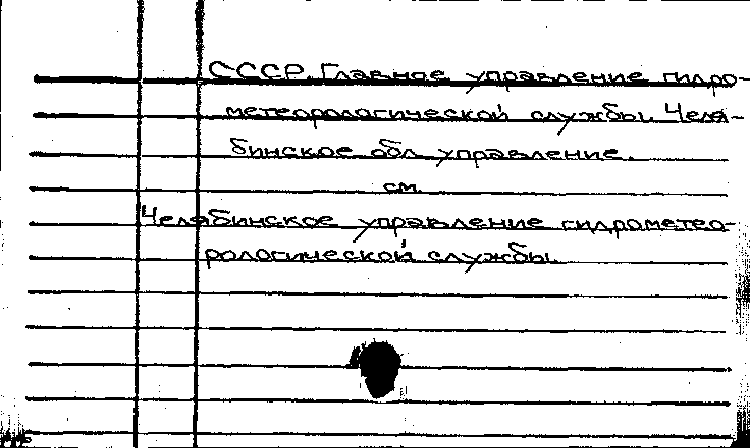 СССР. Главное управление гидро-
метеорологической службы. Челя-
бинское обл. управление.
см.
Челябинское управление гидрометео-
рологической службы.